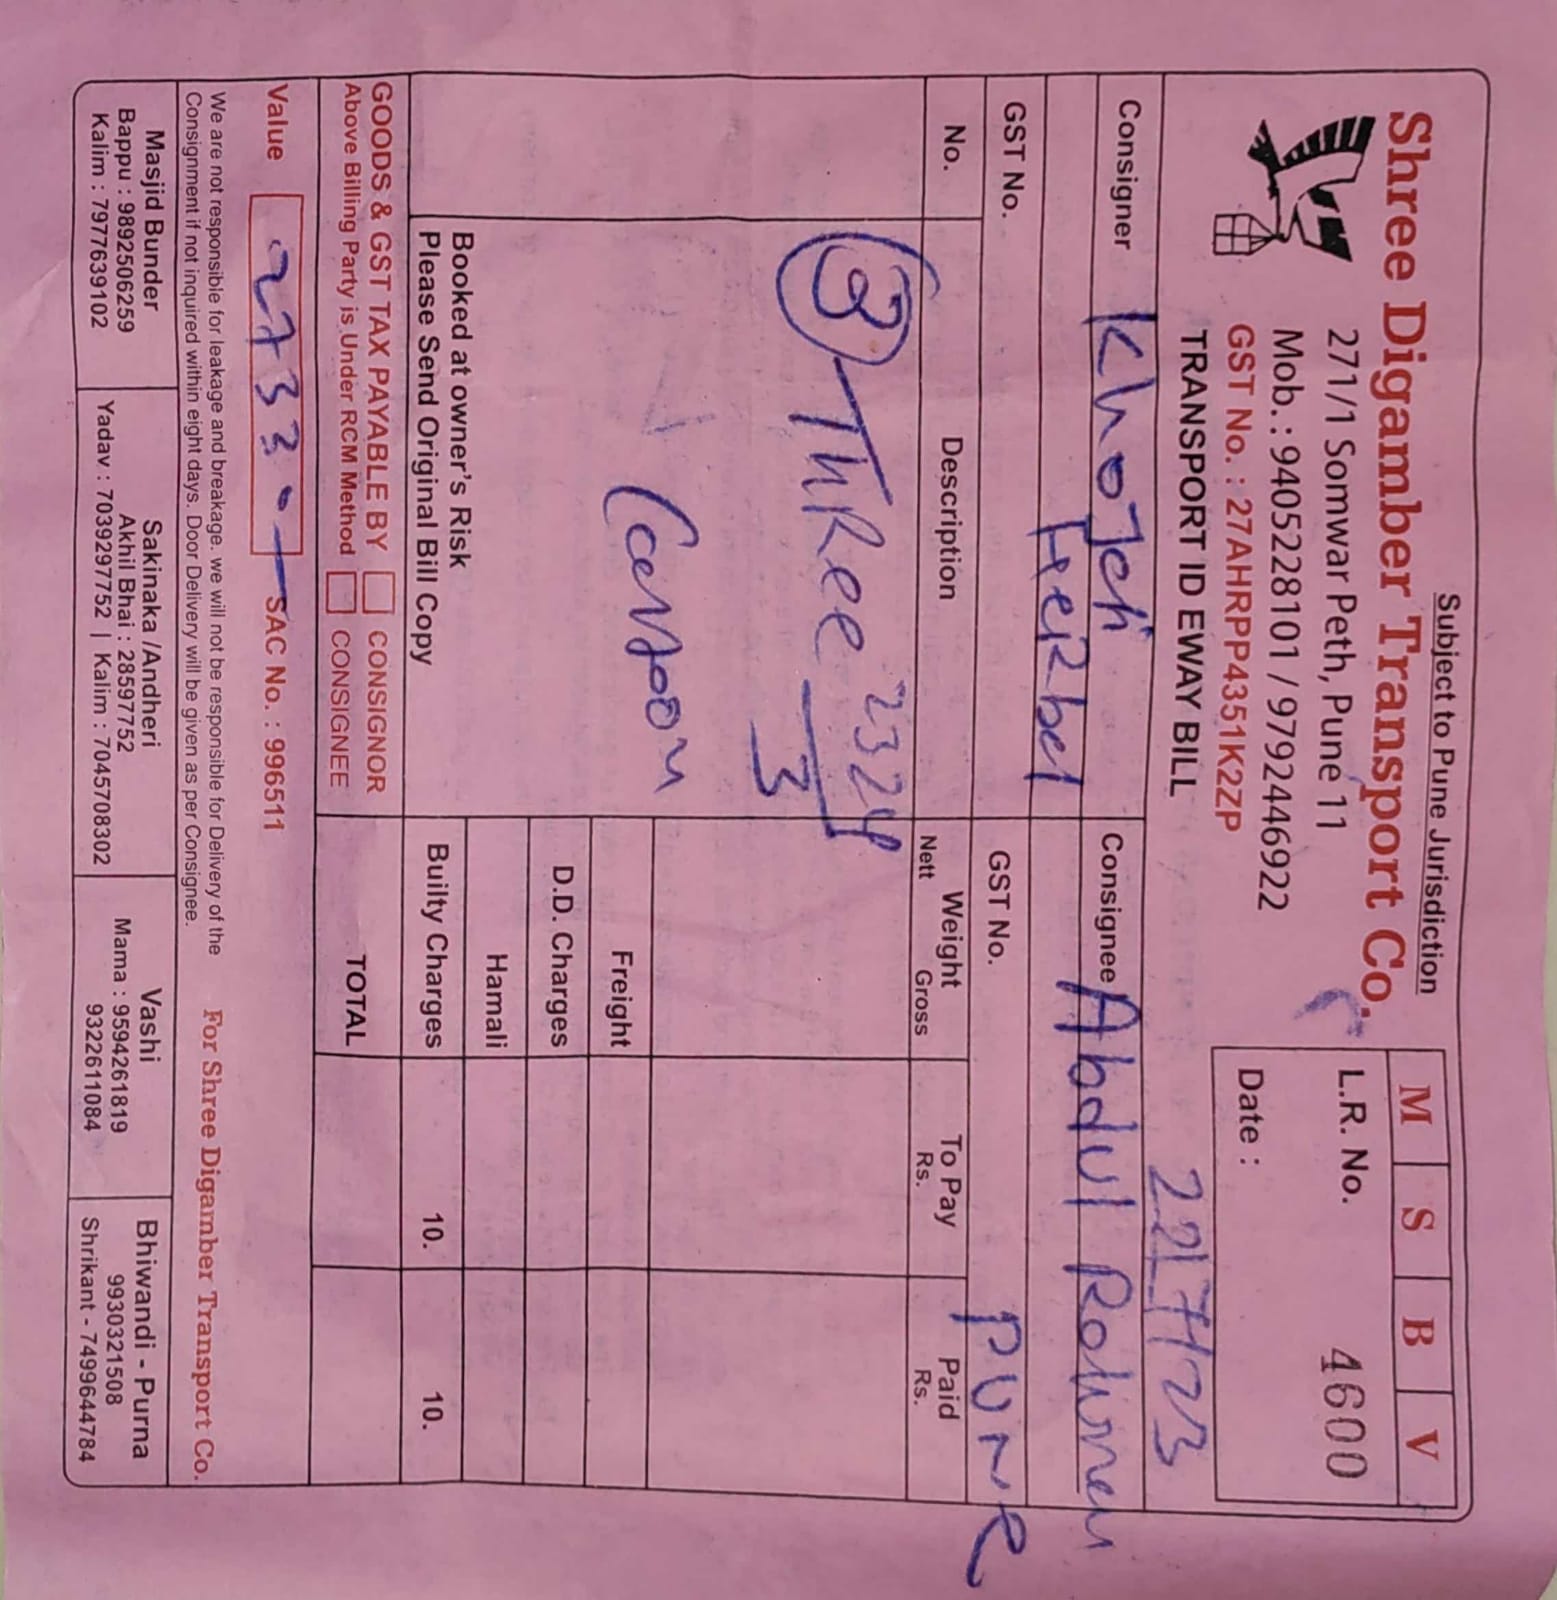 Subject to Pune Jurisdiction
Shree Digamber Transport Co.
271/1 Somwar Peth, Pune 11
Mob. : 9405228101 / 9792446922
GST No. : 27AHRPP4351K2ZP
TRANSPORT ID EWAY BILL
M S B V
L.R. No. 4600
Date :
22/7/23
Consigner
Consignee Abdul
GST No.
GST No.
Pune
No. Description Weight To Pay Paid
Nett Gross Rs. Rs.
3 Three 2324
3
Booked at owner's Risk
Please Send Original Bill Copy
Freight
D.D. Charges
Hamali
Builty Charges 10. 10.
TOTAL
GOODS & GST TAX PAYABLE BY CONSIGNOR
Above Billing Party is Under RCM Method CONSIGNEE
Value 2733 SAC No. : 996511
We are not responsible for leakage and breakage. we will not be responsible for Delivery of the
Consignment if not inquired within eight days. Door Delivery will be given as per Consignee.
For Shree Digamber Transport Co.
Masjid Bunder
Bappu : 9892506259
Kalim : 7977639102
Sakinaka /Andheri
Akhil Bhai : 28597752
Yadav : 7039297752 | Kalim : 7045708302
Vashi
Mama : 9594261819
9322611084
Bhiwandi - Purna
9930321508
Shrikant - 7499644784